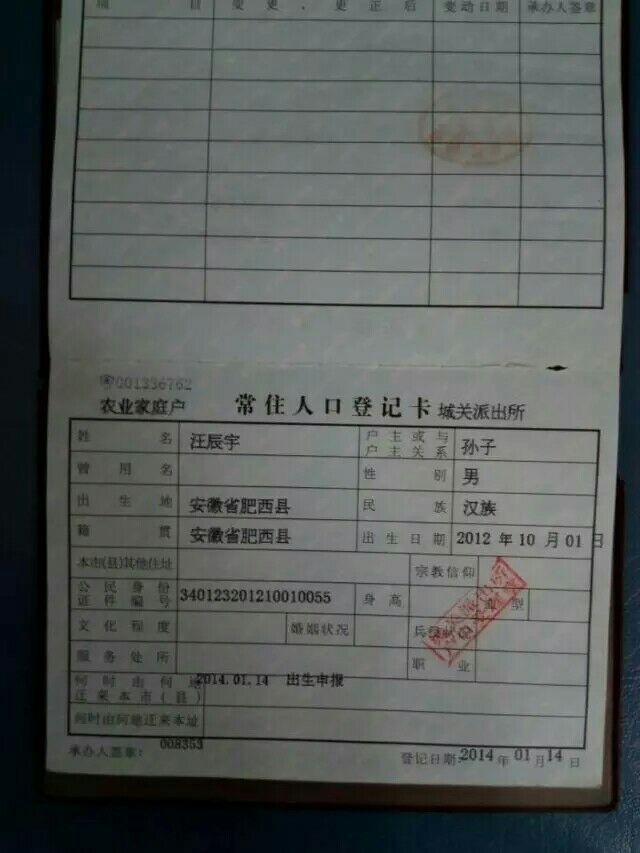 项 目 变更、更正后 变动日期 承办人签章
001336762
农业家庭户 常住人口登记卡 城关派出所
姓名 汪辰宇 户主或与户主关系 孙子
曾用名 性别 男
出生地 安徽省肥西县 民族 汉族
籍贯 安徽省肥西县 出生日期 2012 年 10 月 01 日
本市(县)其他住址 宗教信仰
公民身份证件编号 340123201210010055 身高 血型
文化程度 婚姻状况 兵役状况
服务处所 职业
何时由何地迁来本市(县) 2014.01.14 出生申报
何时由何地迁来本址
承办人签章: 008353 登记日期: 2014 年 01 月 14 日